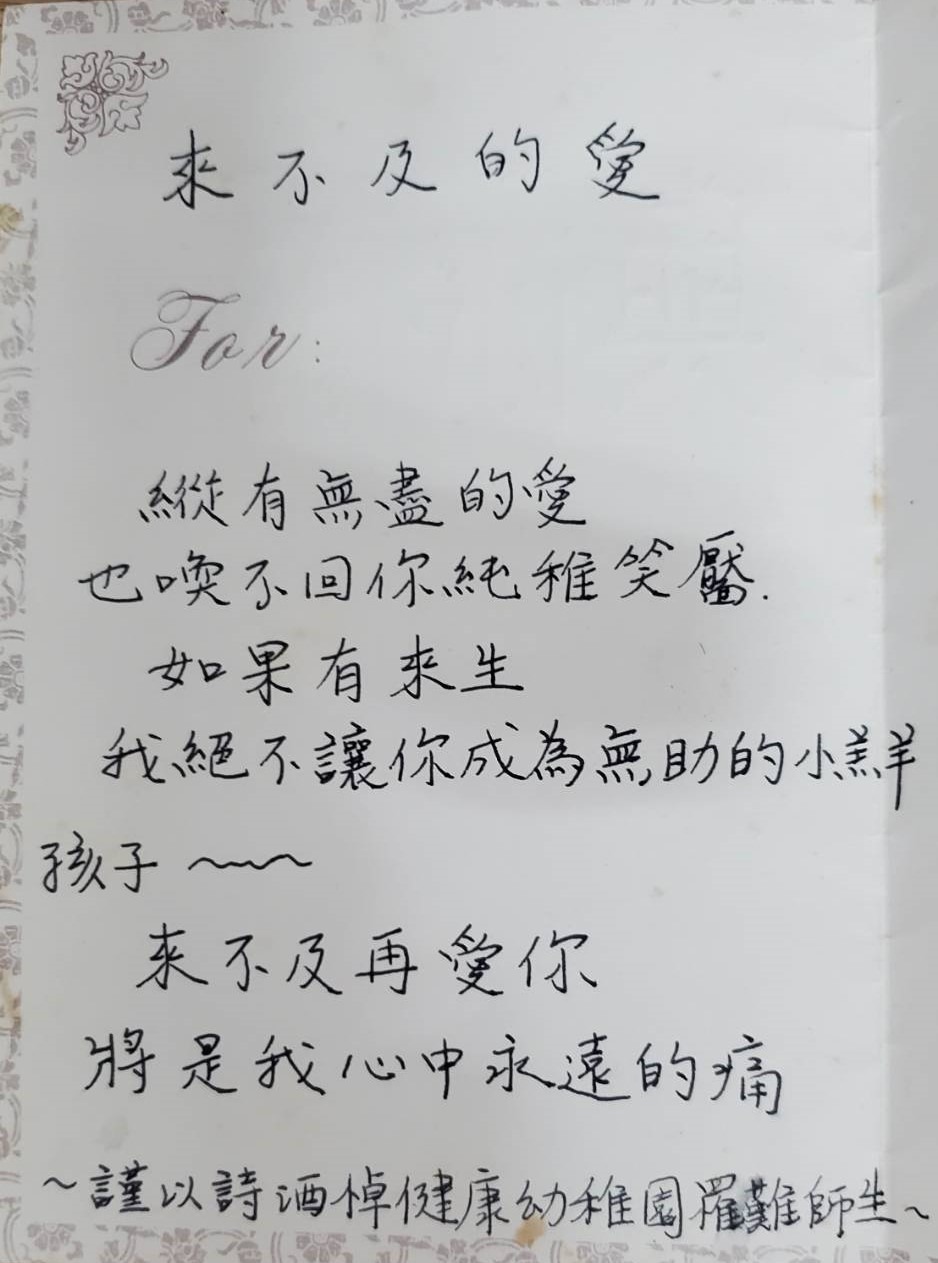 來不及的愛
For:
縱有無盡的愛
也喚不回你純稚笑靨.
如果有來生
我絕不讓你成為無助的小羔羊
孩子~~~
來不及再愛你
將是我心中永遠的痛
~謹以詩酒悼健康幼稚園罹難師生~